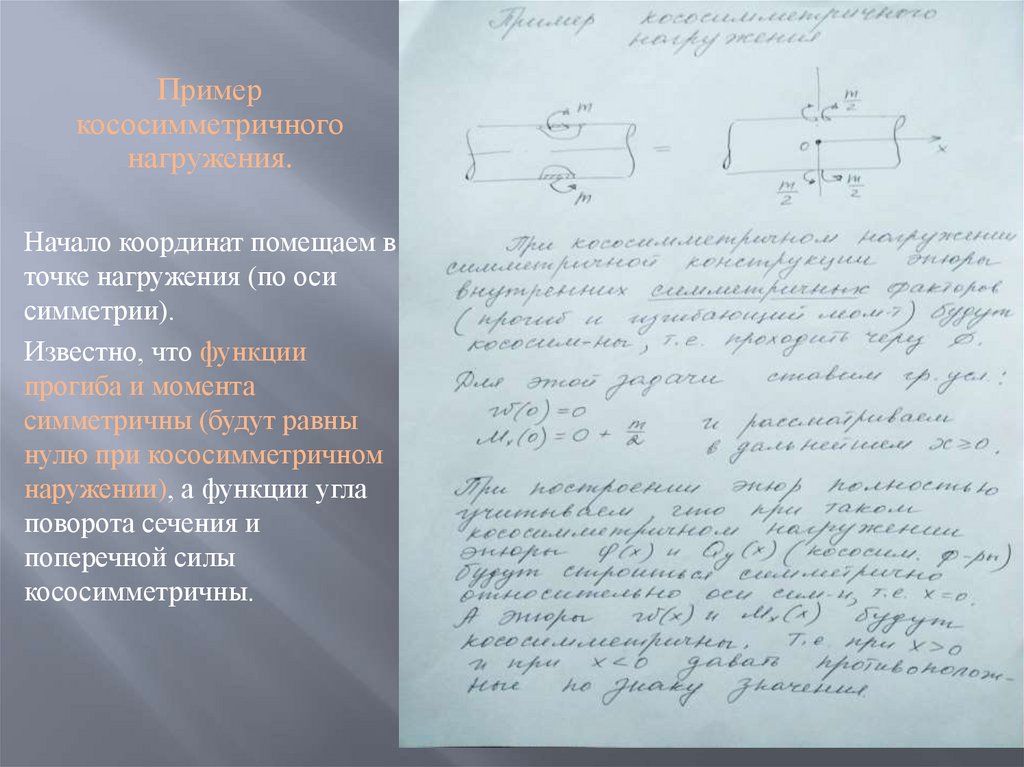 Пример
кососимметричного
нагружения.
Начало координат помещаем в
точке нагружения (по оси
симметрии).
Известно, что функции
прогиба и момента
симметричны (будут равны
нулю при кососимметричном
наружении), а функции угла
поворота сечения и
поперечной силы
кососимметричны.
Пример кососимметричного
нагружения
m
m
=
m/2
0
x
m/2
m/2
При кососимметричном нагружении
симметричной конструкции эпюры
внутренних симметричных факторов
(прогиб и изгибающий мом-т) будут
кососим-ны, т.е. проходить через 0.
Для этой задачи ставим гр. усл:
w(0) = 0
Mx(0) = 0 + m/2
и рассматриваем
в дальнейшем x ≥ 0.
При построении эпюр полностью
учитываем, что при таком
кососимметричном нагружении
эпюры φ(x) и Qy(x) (кососим. ф-ры)
будут строиться симметрично
относительно оси сим-и, т.е. x=0.
А эпюры w(x) и Mx(x) будут
кососимметричны. т.е при x>0
и при x<0 давать противополож-
ные по знаку значения